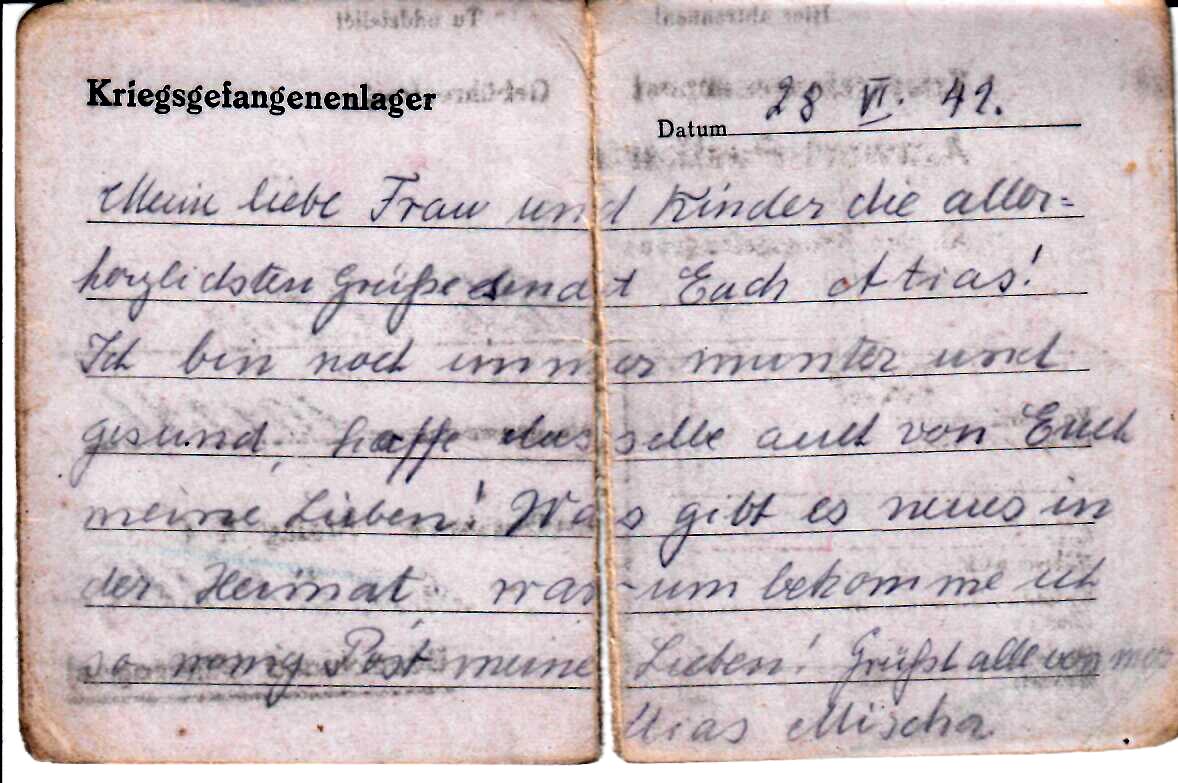 Kriegsgefangenenlager
Datum 28 VI. 42.
Meine liebe Frau und Kinder die aller=
herzlichsten Grüße sendet Euch Atias!
Ich bin noch immer munter und
gesund, hoffe dasselbe auch von Euch
meine Lieben! Was gibt es neues in
der Heimat warum bekomme ich
so wenig Post meine Lieben! Grüßt alle von mir
Atias Mischa